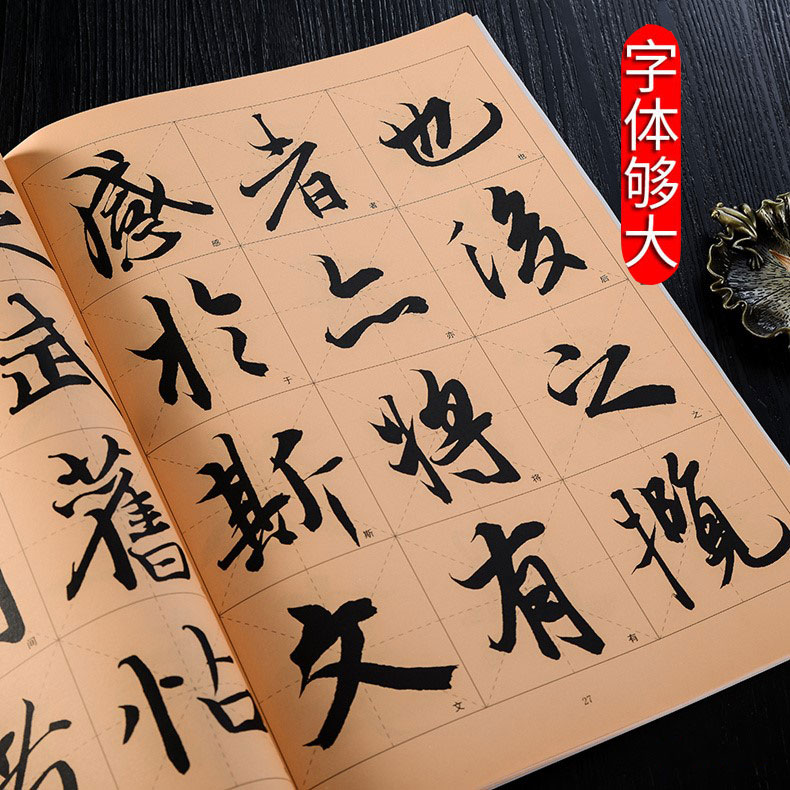 字体够大
也後之攬
者亦將有
感於斯文
也
后
之
者
亦
将
有
感
于
斯
文
27
舊
帖
间